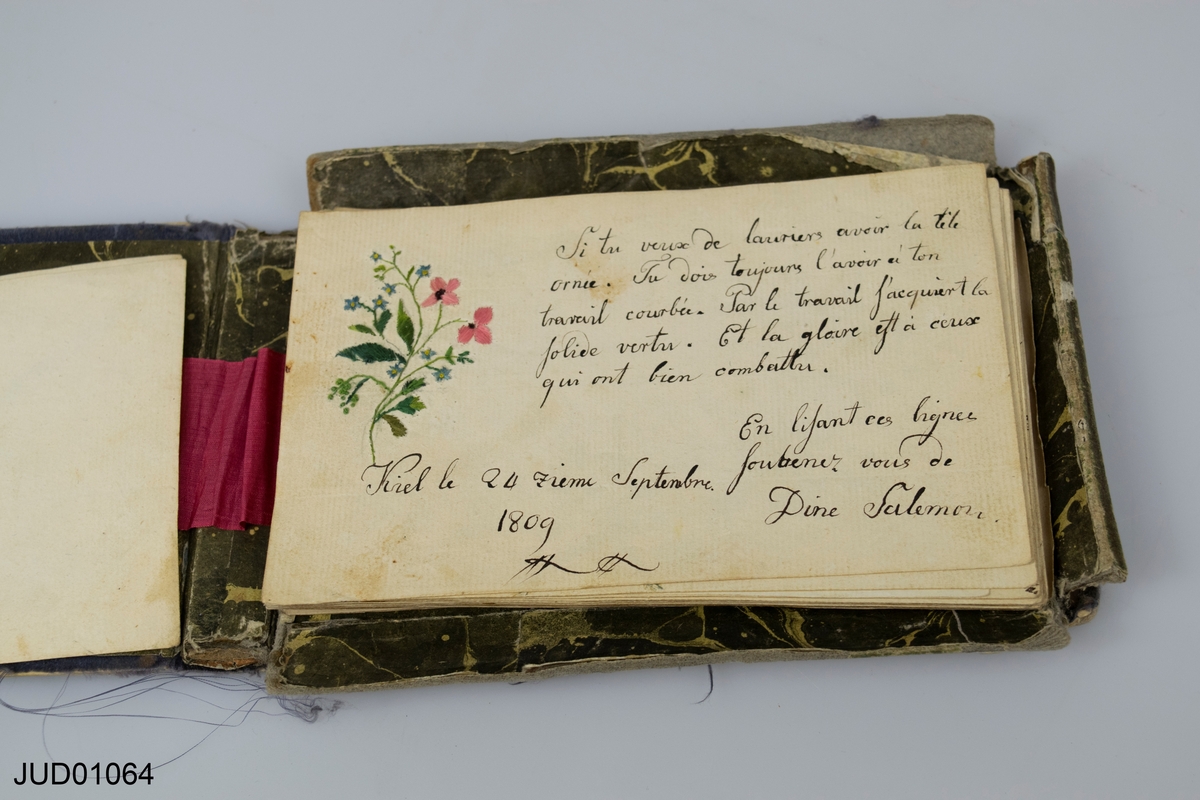 Si tu veux de lauriers avoir la tête
ornée. Tu dois toujours l'avoir à ton
travail courbée. Par le travail s'acquiert la
solide vertu. Et la gloire est à ceux
qui ont bien combattu.
En lisant ces lignes
soubenez vous de
Dine Salemon.
Kiel le 24 zieme Septembre.
1809
JUD01064